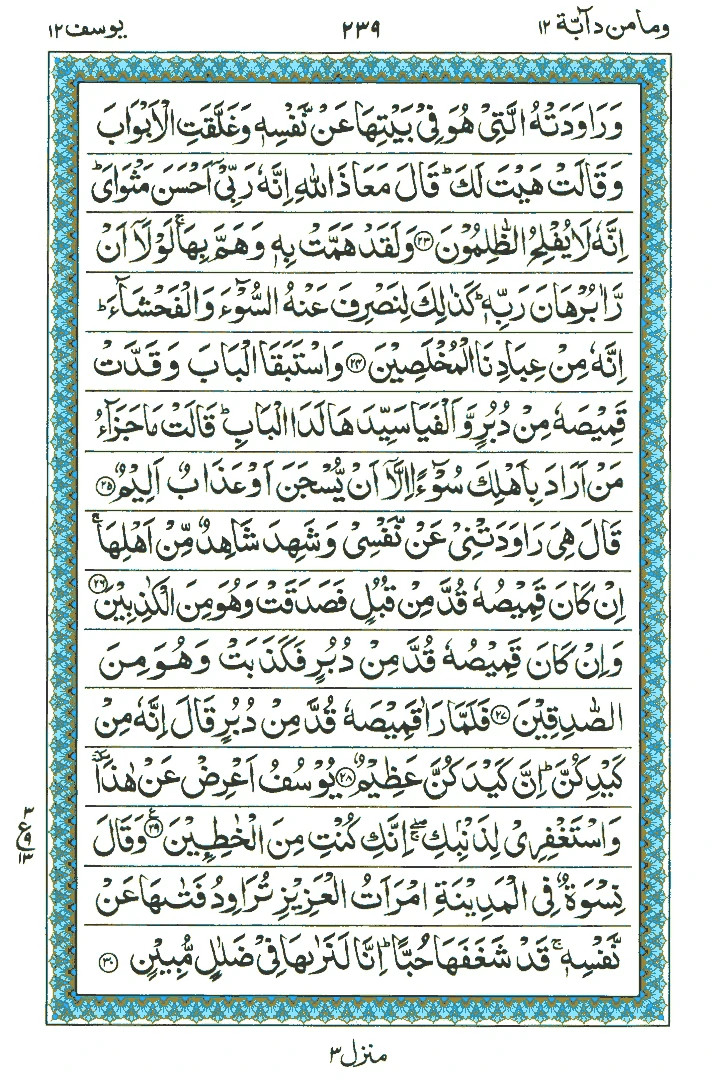 وما من دآبة ١٢ ٢٣٩ يوسف ١٢
وَرَاوَدَتْهُ الَّتِیْ هُوَ فِیْ بَيْتِهَا عَنْ نَّفْسِهٖ وَغَلَّقَتِ الْاَبْوَابَ
وَقَالَتْ هَيْتَ لَكَ ؕ قَالَ مَعَاذَ اللّٰهِ اِنَّهٗ رَبِّیْٓ اَحْسَنَ مَثْوَایَ ؕ
اِنَّهٗ لَا يُفْلِحُ الظّٰلِمُوْنَ ﴿۲۳﴾ وَلَقَدْ هَمَّتْ بِهٖ وَهَمَّ بِهَا ۚ لَوْلَاۤ اَنْ
رَّاٰ بُرْهَانَ رَبِّهٖ ؕ كَذٰلِكَ لِنَصْرِفَ عَنْهُ السُّوْٓءَ وَالْفَحْشَآءَ ؕ
اِنَّهٗ مِنْ عِبَادِنَا الْمُخْلَصِيْنَ ﴿۲۴﴾ وَاسْتَبَقَا الْبَابَ وَقَدَّتْ
قَمِيْصَهٗ مِنْ دُبُرٍ وَّاَلْفَيَا سَيِّدَهَا لَدَا الْبَابِ ؕ قَالَتْ مَا جَزَآءُ
مَنْ اَرَادَ بِاَهْلِكَ سُوْٓءًا اِلَّاۤ اَنْ يُّسْجَنَ اَوْ عَذَابٌ اَلِيْمٌ ﴿۲۵﴾
قَالَ هِیَ رَاوَدَتْنِیْ عَنْ نَّفْسِیْ وَشَهِدَ شَاهِدٌ مِّنْ اَهْلِهَا ۚ
اِنْ كَانَ قَمِيْصُهٗ قُدَّ مِنْ قُبُلٍ فَصَدَقَتْ وَهُوَ مِنَ الْكٰذِبِيْنَ ﴿۲۶﴾
وَاِنْ كَانَ قَمِيْصُهٗ قُدَّ مِنْ دُبُرٍ فَكَذَبَتْ وَهُوَ مِنَ
الصّٰدِقِيْنَ ﴿۲۷﴾ فَلَمَّا رَاٰ قَمِيْصَهٗ قُدَّ مِنْ دُبُرٍ قَالَ اِنَّهٗ مِنْ
كَيْدِكُنَّ ؕ اِنَّ كَيْدَكُنَّ عَظِيْمٌ ﴿۲۸﴾ يُوْسُفُ اَعْرِضْ عَنْ هٰذَا ٚ
وَاسْتَغْفِرِیْ لِذَنْۢبِكِ ۖۚ اِنَّكِ كُنْتِ مِنَ الْخٰطِـِٕيْنَ ﴿۲۹﴾ ع وَقَالَ
٣ ع ٩ ١٣
نِسْوَةٌ فِی الْمَدِيْنَةِ امْرَاَتُ الْعَزِيْزِ تُرَاوِدُ فَتٰىهَا عَنْ
نَّفْسِهٖ ۚ قَدْ شَغَفَهَا حُبًّا ؕ اِنَّا لَنَرٰىهَا فِیْ ضَلٰلٍ مُّبِيْنٍ ﴿۳۰﴾
منزل ٣